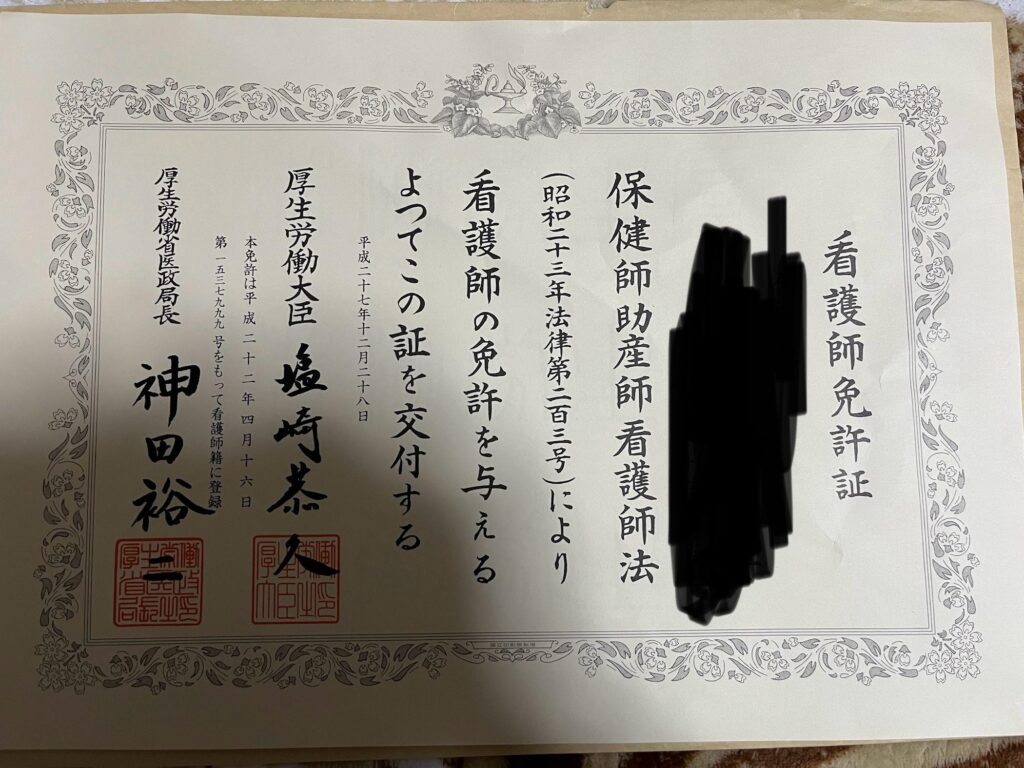 看護師免許証
保健師助産師看護師法
(昭和二十三年法律第二百三号)により
看護師の免許を与える
よつてこの証を交付する
平成二十七年十二月二十八日
厚生労働大臣 塩崎恭久
本免許は平成二十二年四月十六日
第一五三七九九九号をもって看護師籍に登録
厚生労働省医政局長 神田裕二
国立印刷局製造